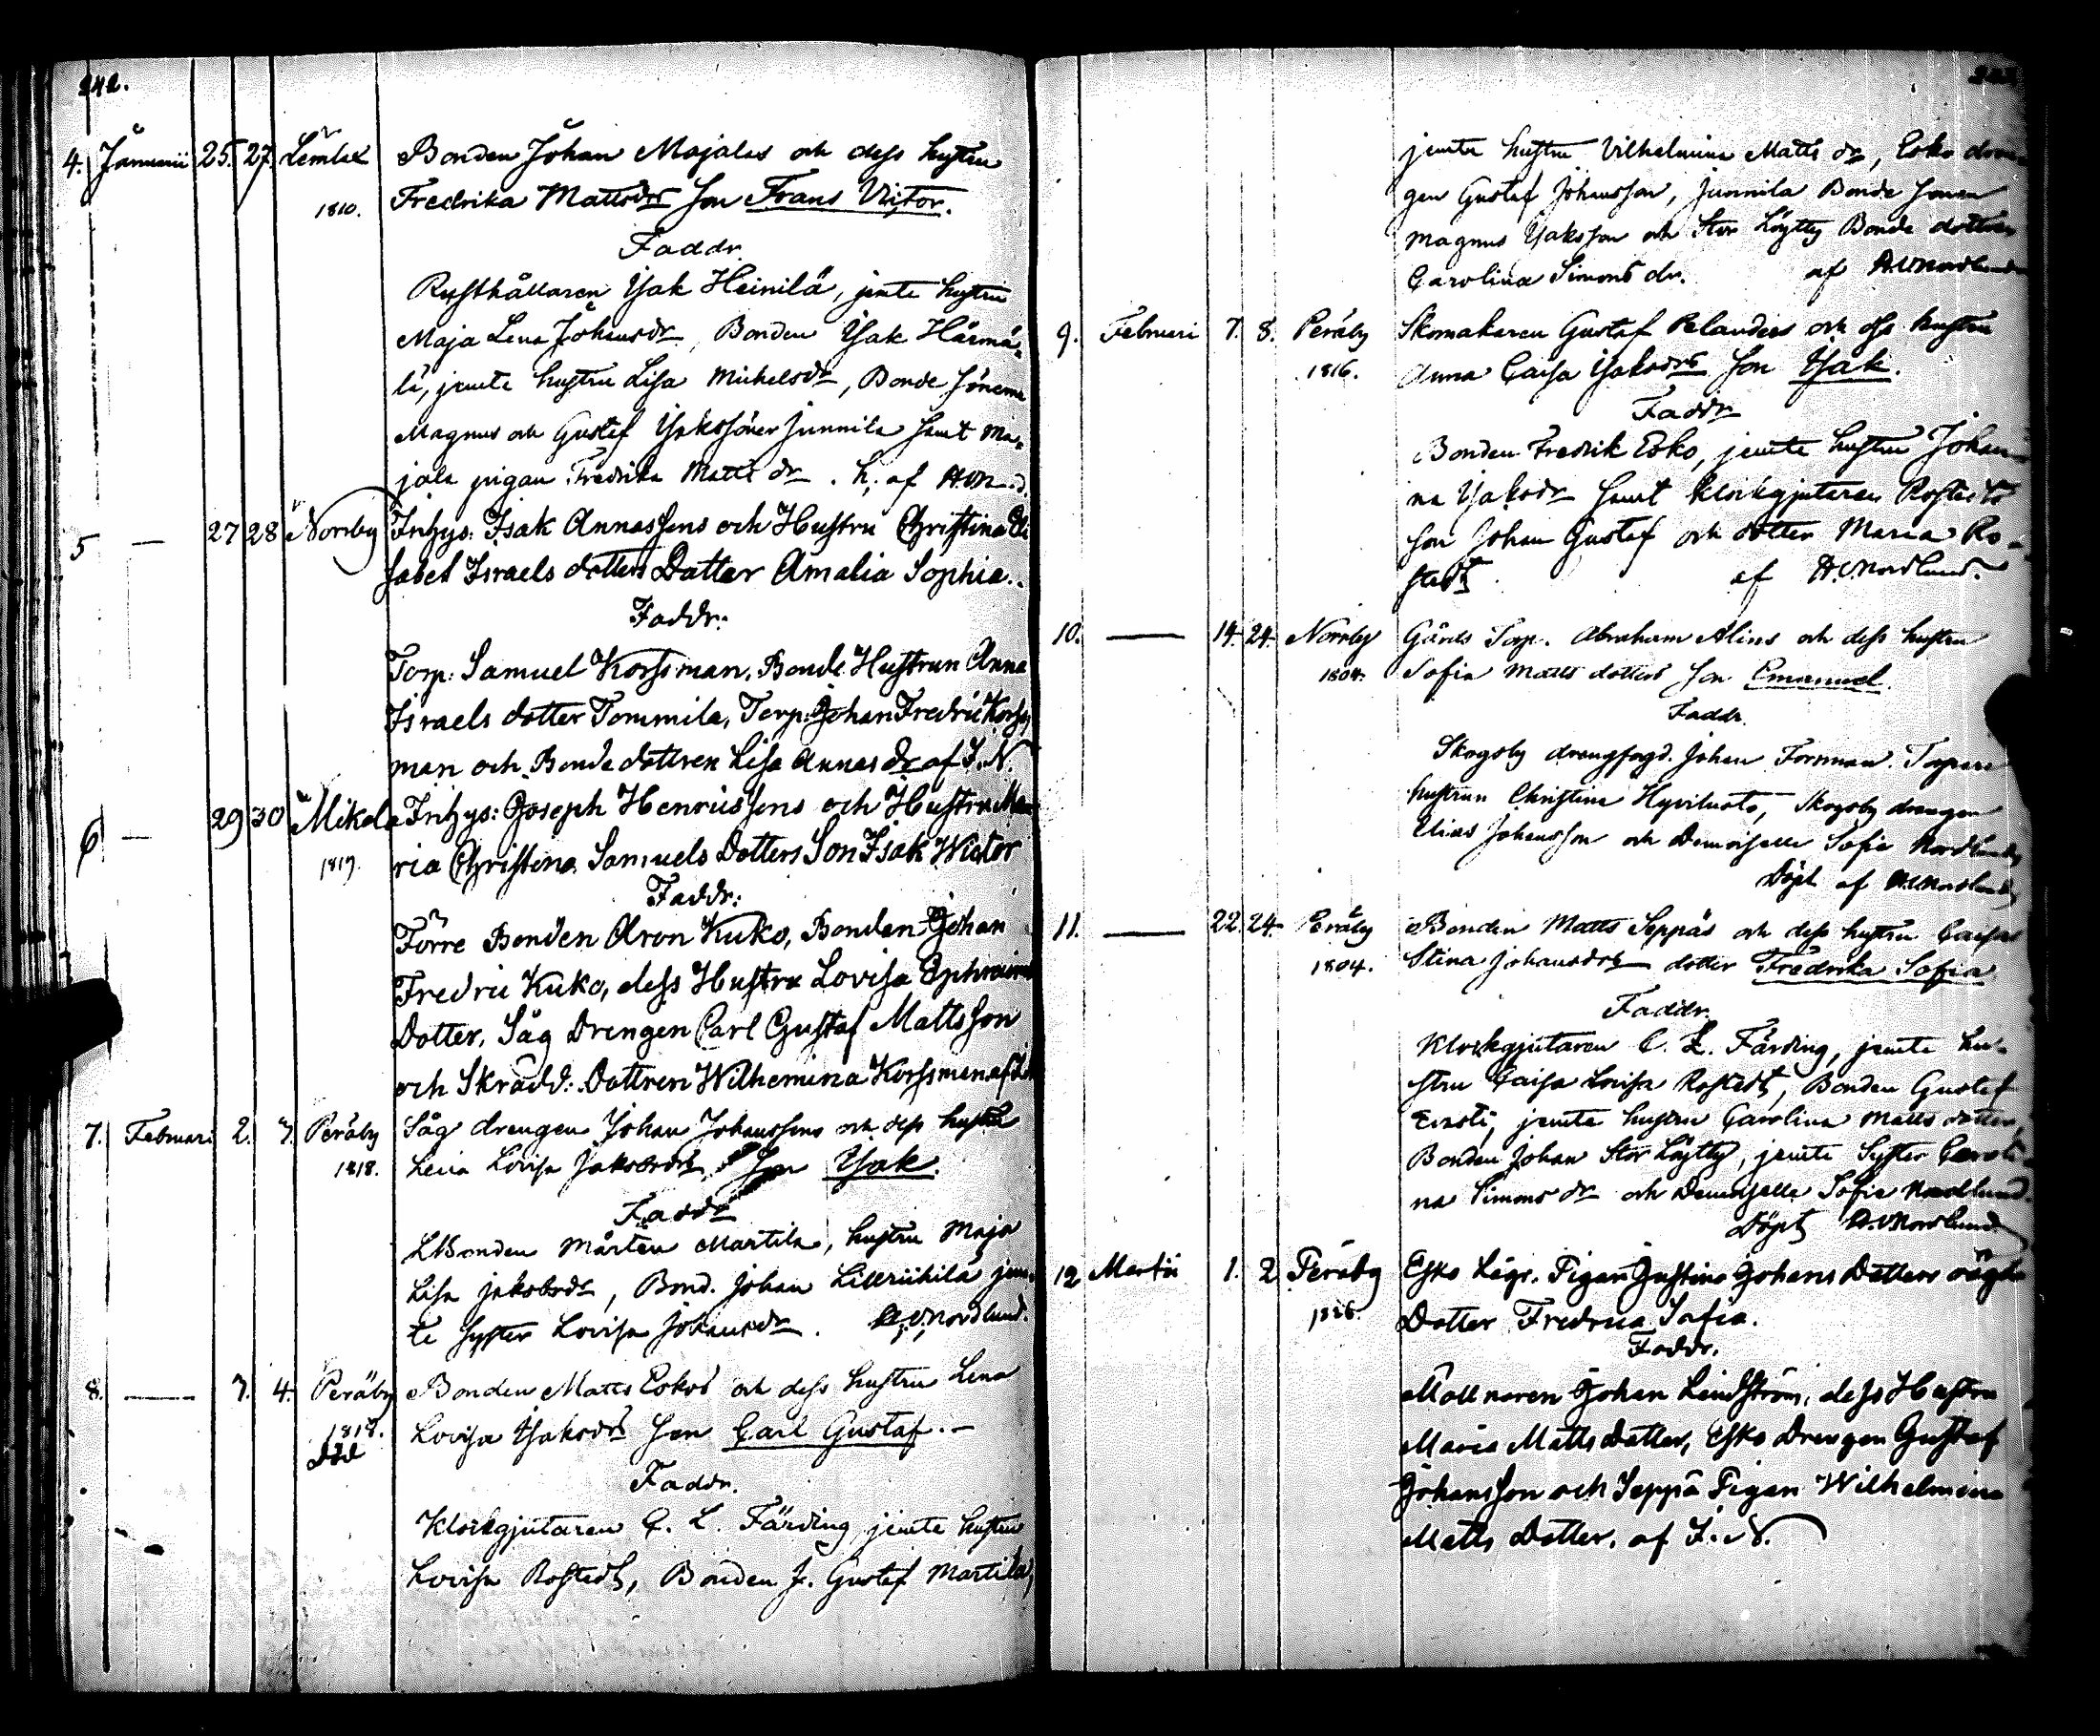 242.
4. Januarii 25. 27. Lemlax Bonden Johan Majalas och dess hustru
1810. Fredrika Mattsdrs Son Frans Victor.
Faddr.
Rusthållaren Isak Heinilä, jemte hustru
Maja Lena Johansdr, Bonden Isak Härmä-
lä, jemte hustru Lisa Michelsdr, Bonde sönerna
Magnus och Gustaf Isakssöner Junnila samt Ma-
jala pigan Fredrika Matts dr. h. af
5 — 27 28 Norrby Inhys: Isak Annassons och Hustru Christina Eli
sabet Israels dotters Dotter Amalia Sophia.
Faddr:
Torp: Samuel Korssman, Bonde Hustrun Anna
Israels dotter Tommila, Torp: Johan Fredric Korss,
man och Bonde dottren Lisa Annas dr af I. N.
6 — 29 30 Mikola Inhys: Joseph Henricssons och Hustru Ma
1819. ria Christina Samuels Dotters Son Isak Wictor
Faddr:
Förre Bonden Aron Kuko, Bonden Johan
Fredric Kuko, dess Hustru Lovisa Ephraims
Dotter, Såg Drengen Carl Gustaf Mattsson
och Skrädd: Dottren Wilhemina Korssman af I. N.
7. Februari 2. 3. Peräby Såg drengen Johan Johanssons och dess hustru
1818. Lena Lovisa Jakobsdrs Son Isak.
Faddr
Bonden Mårten Martila, hustru Maja
Lisa Jakobsdr, Bond. Johan Lillriihilä jem-
te Syster Lovisa Johansdr. A. V. Nordlund.
8. — 3. 4. Peräby Bonden Matts Eskos och dess hustru Lena
Lovisa Isaksdrs Son Carl Gustaf. —
död
Faddr.
Klockgjutaren C. L. Färding jemte hustru
Lovisa Rostedt, Bonden J. Gustaf Martila,
jemte hustru Vilhelmina Matts dr, Esko dren-
gen Gustaf Johansson, Junnila Bonde sonen
Magnus Isaksson och Stor Löytty Bonde dottren
Carolina Simons dr. af A. V. Nordlund
9. Februari 7. 8. Peräby Skomakaren Gustaf Pelanders och dess hustru
1816. Anna Caisa Isaksdrs Son Isak.
Faddr
Bonden Fredrik Esko, jemte hustru Johan-
na Isaksdr samt klockgjutaren Rostedts
Son Johan Gustaf och dotter Maria Ro-
stedt af A. V. Nordlund.
10. — 14. 24. Norrby Gårds Torp. Abraham Alins och dess hustru
1804. Sofia Matts dotters Son Emanuel.
Faddr.
Skogsby drengfogd. Johan Forsman. Torpare
hustrun Christina Hyvilusto, Skogsby drengen
Elias Johansson och Demoiselle Sofie Nordlund
Döpt af A. V. Nordlund
11. — 22. 24. Peräby Bonden Matts Seppäs och dess hustru Caisa
1804. Stina Johansdrs dotter Fredrika Sofia
Faddr.
Klockgjutaren C. L. Färding, jemte hu-
stru Caisa Lovisa Rostedt, Bonden Gustaf
jemte hustru Carolina Matts dotter,
Bonden Johan Stor Löytty, jemte Syster Caroli-
na Simons dr och Demoiselle Sofie Nordlund.
Döpt A. V. Nordlund
12 Martii 1. 2 Peräby Esko Lägs. Pigan Justina Johans Dotters oägta
Dotter Fredrica Sofia.
Faddr.
Möllnaren Johan Lindström, dess Hustru
Maria Matts Dotter, Esko Drengen Gustaf
Johansson och Seppä Pigan Wilhelmina
Matts Dotter. af I. N.